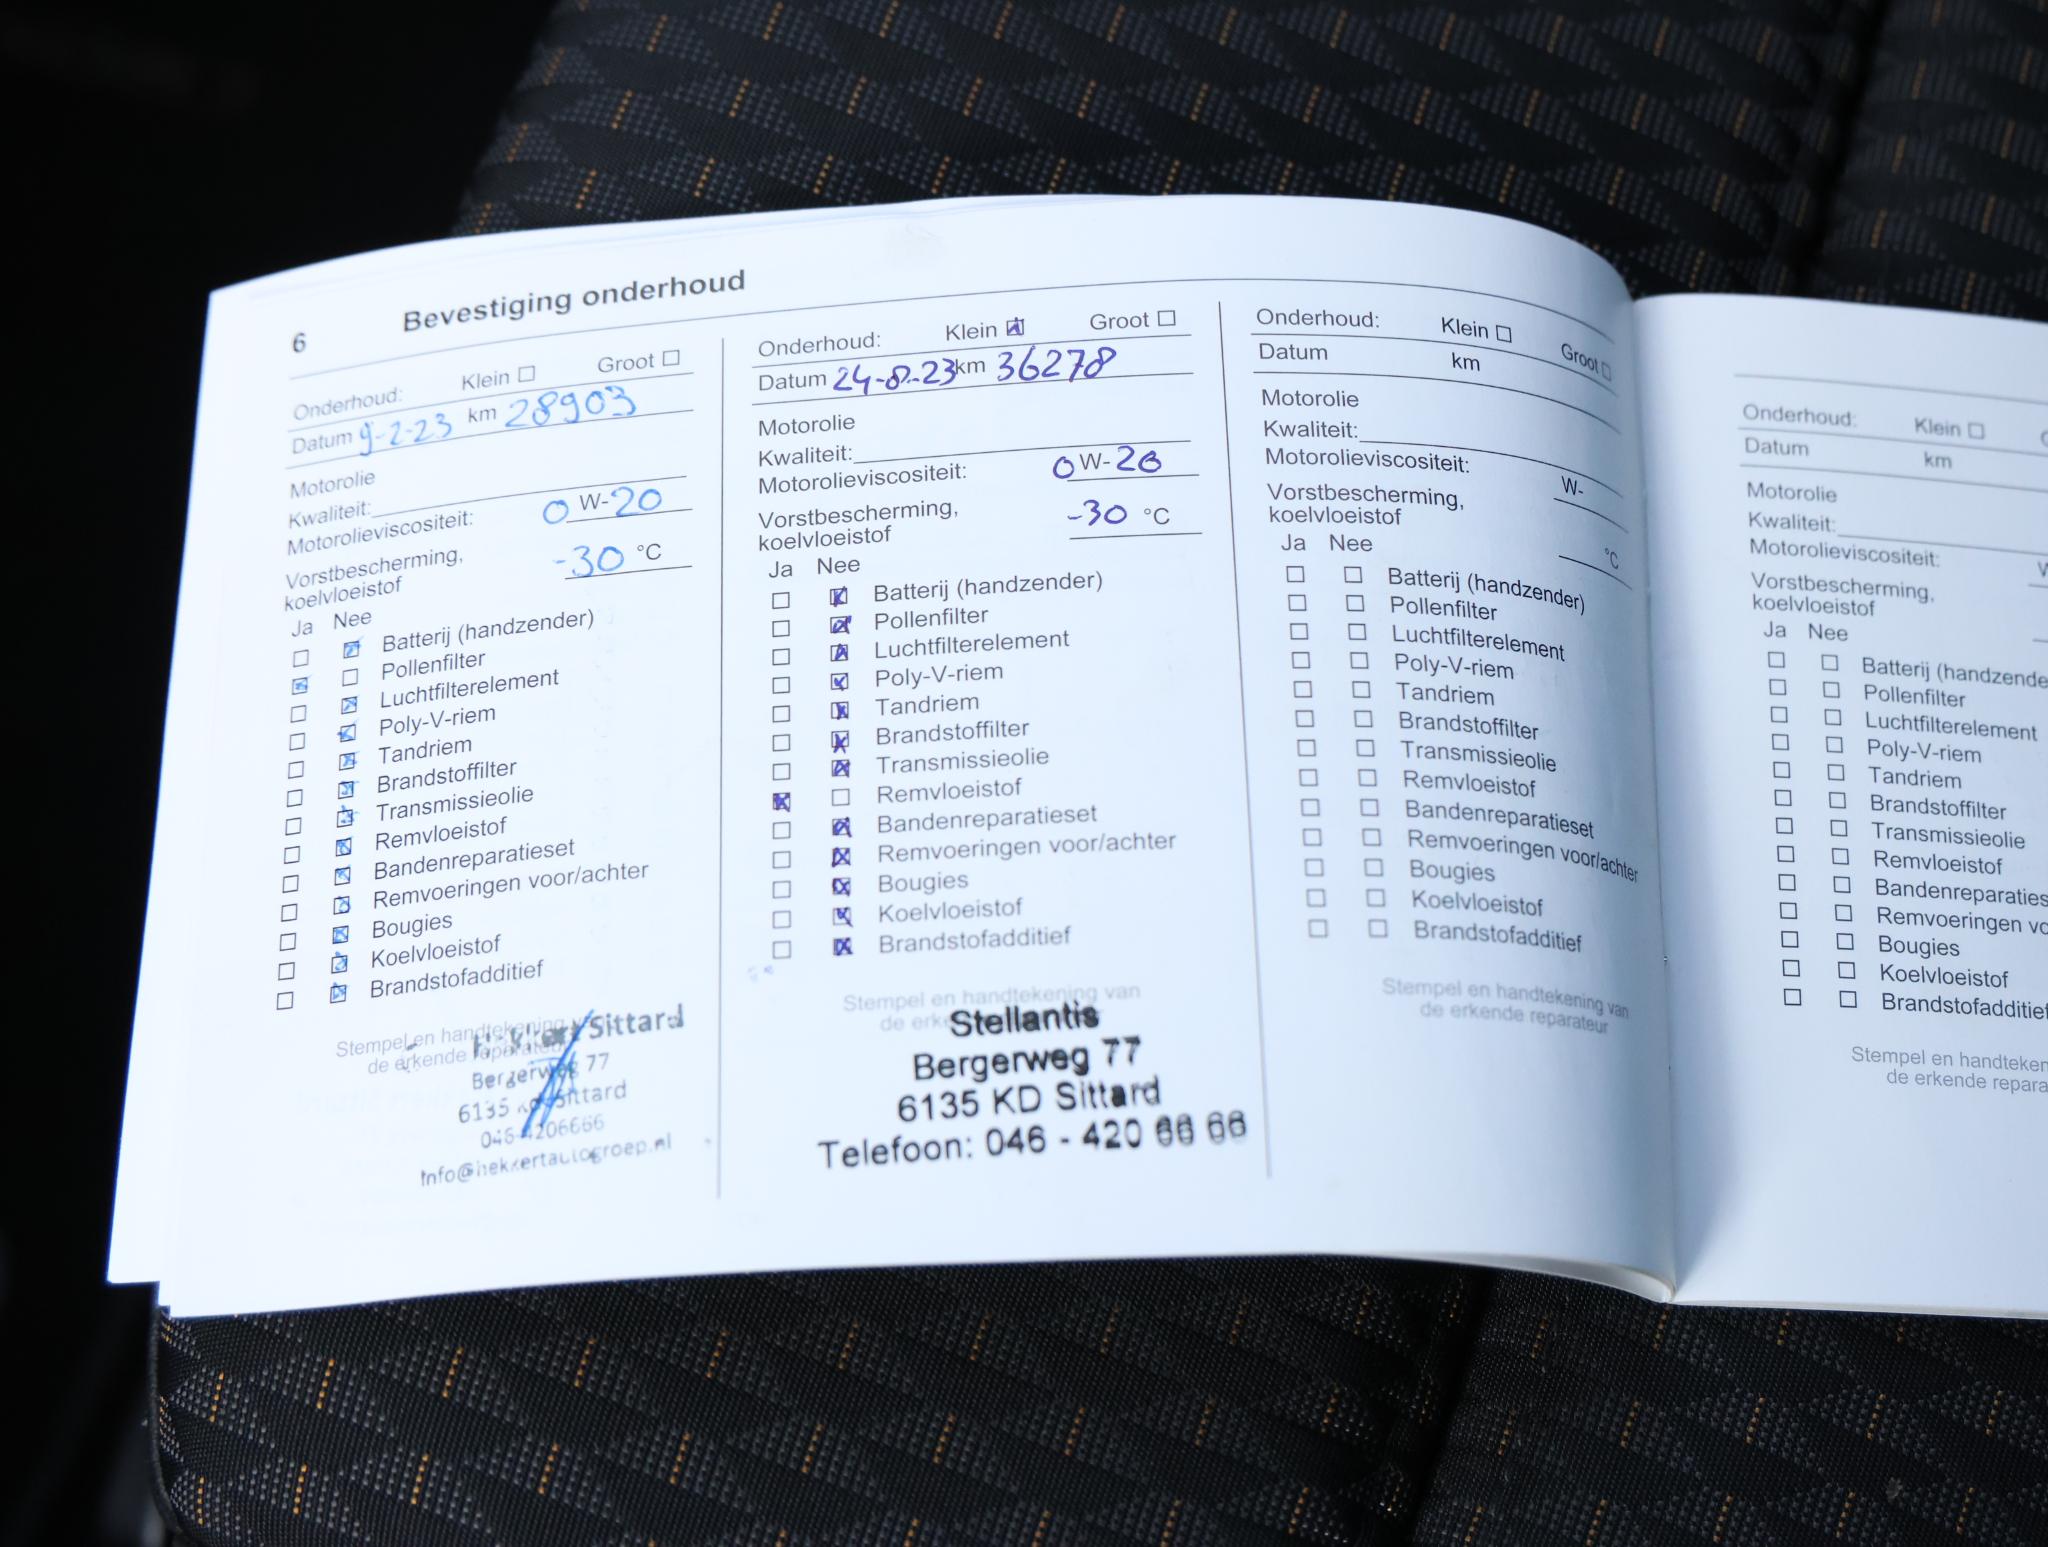 6 Bevestiging onderhoud
Onderhoud: Klein Groot
Datum 9-2-23 km 28903
Motorolie
Kwaliteit:
Motorolieviscositeit: 0 W-20
Vorstbescherming,
koelvloeistof -30 °C
Ja Nee
Batterij (handzender)
Pollenfilter
Luchtfilterelement
Poly-V-riem
Tandriem
Brandstoffilter
Transmissieolie
Remvloeistof
Bandenreparatieset
Remvoeringen voor/achter
Bougies
Koelvloeistof
Brandstofadditief
Stempel en handtekening
de erkende
Sittard
Bergerweg 77
6135 Sittard
046-4206666
Info@hekkertautogroep.nl
Onderhoud: Klein Groot
Datum 24-8-23 km 36278
Motorolie
Kwaliteit:
Motorolieviscositeit: 0 W-20
Vorstbescherming,
koelvloeistof -30 °C
Ja Nee
Batterij (handzender)
Pollenfilter
Luchtfilterelement
Poly-V-riem
Tandriem
Brandstoffilter
Transmissieolie
Remvloeistof
Bandenreparatieset
Remvoeringen voor/achter
Bougies
Koelvloeistof
Brandstofadditief
Stempel en handtekening van
de erkende reparateur
Stellantis
Bergerweg 77
6135 KD Sittard
Telefoon: 046 - 420 66 66
Onderhoud: Klein Groot
Datum km
Motorolie
Kwaliteit:
Motorolieviscositeit: W-
Vorstbescherming,
koelvloeistof °C
Ja Nee
Batterij (handzender)
Pollenfilter
Luchtfilterelement
Poly-V-riem
Tandriem
Brandstoffilter
Transmissieolie
Remvloeistof
Bandenreparatieset
Remvoeringen voor/achter
Bougies
Koelvloeistof
Brandstofadditief
Stempel en handtekening van
de erkende reparateur
Onderhoud: Klein
Datum km
Motorolie
Kwaliteit:
Motorolieviscositeit:
Vorstbescherming,
koelvloeistof
Ja Nee
Batterij (handzende
Pollenfilter
Luchtfilterelement
Poly-V-riem
Tandriem
Brandstoffilter
Transmissieolie
Remvloeistof
Bandenreparaties
Remvoeringen vo
Bougies
Koelvloeistof
Brandstofadditief
Stempel en handteken
de erkende repara